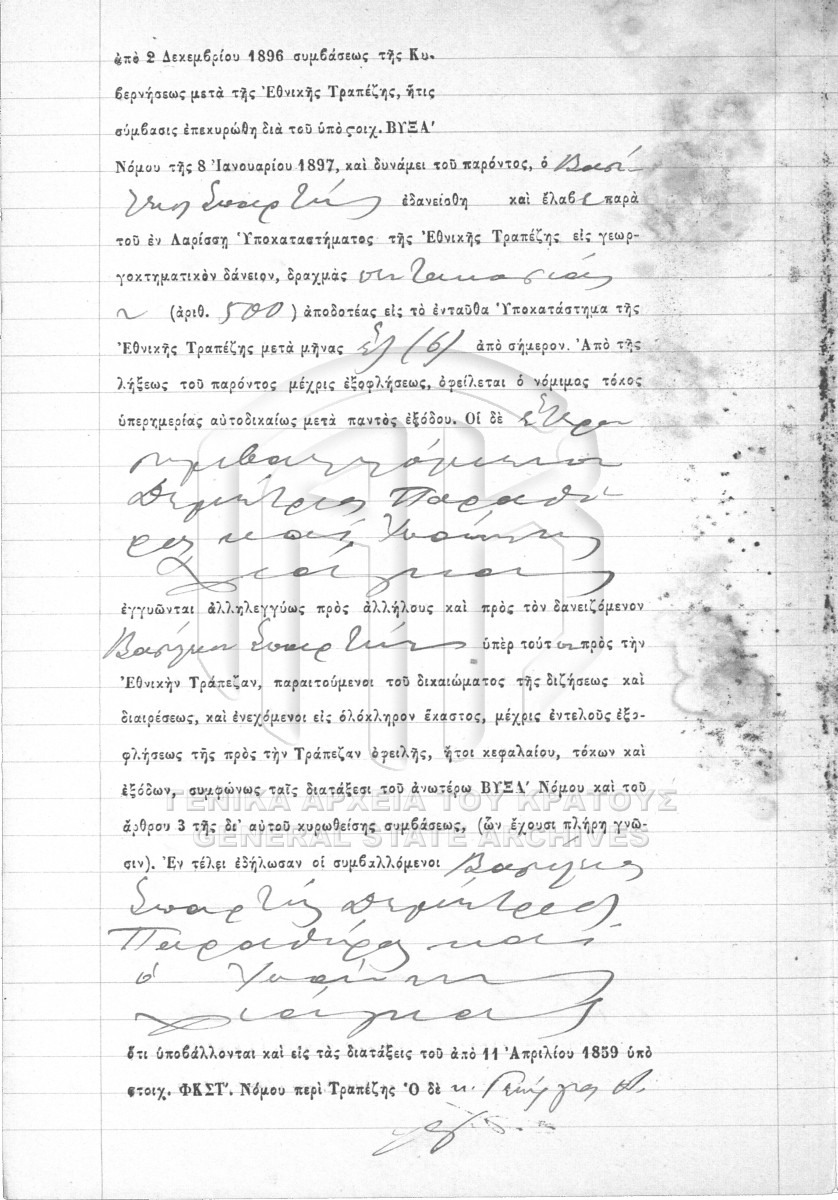 ἀπὸ 2 Δεκεμβρίου 1896 συμβάσεως τῆς Κυ-
βερνήσεως μετὰ τῆς Ἐθνικῆς Τραπέζης, ἥτις
σύμβασις ἐπεκυρώθη διὰ τοῦ ὑπὸ ϛοιχ. ΒΥΞΑ'
Νόμου τῆς 8 Ἰανουαρίου 1897, καὶ δυνάμει τοῦ παρόντος, ὁ Βασί-
λειος Σπαρτιώτης ἐδανείσθη καὶ ἔλαβε παρὰ
τοῦ ἐν Λαρίσσῃ Ὑποκαταστήματος τῆς Ἐθνικῆς Τραπέζης εἰς γεωρ-
γοκτηματικὸν δάνειον, δραχμὰς πεντακοσίας
(ἀριθ. 500) ἀποδοτέας εἰς τὸ ἐνταῦθα Ὑποκατάστημα τῆς
Ἐθνικῆς Τραπέζης μετὰ μῆνας ἓξ (6) ἀπὸ σήμερον. Ἀπὸ τῆς
λήξεως τοῦ παρόντος μέχρις ἐξοφλήσεως, ὀφείλεται ὁ νόμιμος τόκος
ὑπερημερίας αὐτοδικαίως μετὰ παντὸς ἐξόδου. Οἱ δὲ ἕτεροι
συμβαλλόμενοι
Δημήτριος Παραθύ-
ρας καὶ Ἰωάννης
ἐγγυῶνται ἀλληλεγγύως πρὸς ἀλλήλους καὶ πρὸς τὸν δανειζόμενον
Βασίλειον ὑπὲρ τούτου πρὸς τὴν
Ἐθνικὴν Τράπεζαν, παραιτούμενοι τοῦ δικαιώματος τῆς διζήσεως καὶ
διαιρέσεως, καὶ ἐνεχόμενοι εἰς ὁλόκληρον ἕκαστος, μέχρις ἐντελοῦς ἐξο-
φλήσεως τῆς πρὸς τὴν Τράπεζαν ὀφειλῆς, ἤτοι κεφαλαίου, τόκων καὶ
ἐξόδων, συμφώνως ταῖς διατάξεσι τοῦ ἀνωτέρω ΒΥΞΑ' Νόμου καὶ τοῦ
ΓΕΝΙΚΑ ΑΡΧΕΙΑ ΤΟΥ ΚΡΑΤΟΥΣ
ἄρθρου 3 τῆς δι' αὐτοῦ κυρωθείσης συμβάσεως, (ὧν ἔχουσι πλήρη γνῶ-
GENERAL STATE ARCHIVES
σιν). Ἐν τέλει ἐδήλωσαν οἱ συμβαλλόμενοι Βασίλειος
Δημήτριος
Παραθύρας καὶ
ὁ Ἰωάννης
ὅτι ὑποβάλλονται καὶ εἰς τὰς διατάξεις τοῦ ἀπὸ 11 Ἀπριλίου 1859 ὑπὸ
στοιχ. ΦΚΣΤ'. Νόμου περὶ Τραπέζης Ὁ δὲ κ. Γεώργιος